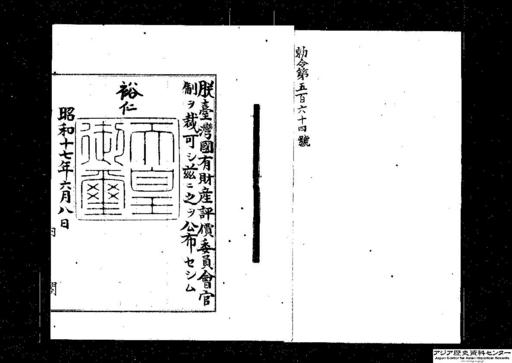 勅令第五百六十四號
朕臺灣國有財産評價委員會官
制ヲ裁可シ茲ニ之ヲ公布セシム
裕仁
天皇
御璽
昭和十七年六月八日
内閣
アジア歴史資料センター
Japan Center for Asian Historical Records